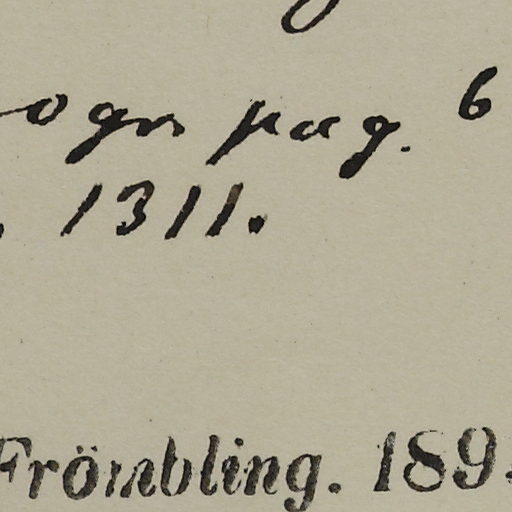 ogr pag. 6
1311.
Frömbling. 189